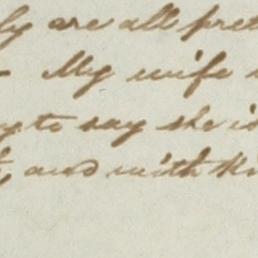 ly are all pret
- My wife
y to say she is
t, and with Ki